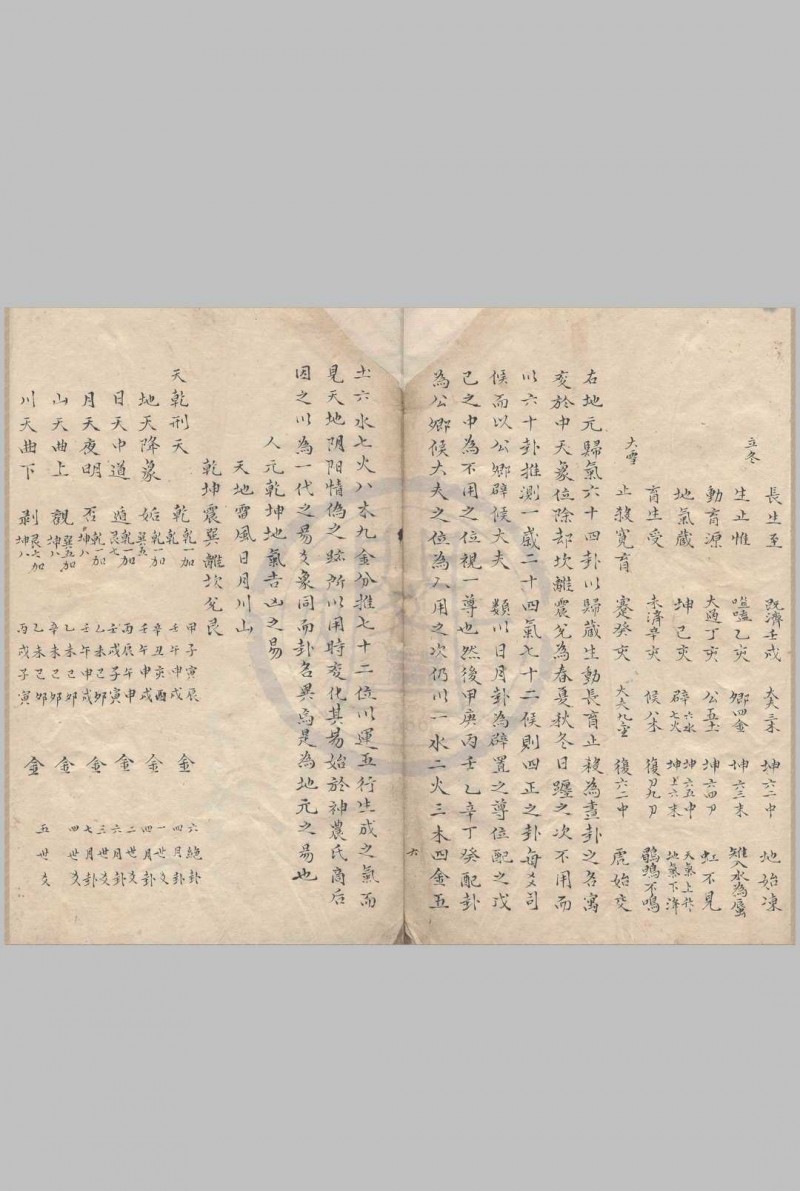 長生至 既濟壬戌 大夫三木 坤六二中 地始凍
立冬 生止惟 嗑乙亥 卿四金 坤六三末 雉入水為蜃
動育源 大過丁亥 公五土 坤六四初 虹不見
地氣藏 坤己亥 辟六水七火 坤六五中坤上六末 天氣上升地氣下降
育生受 未濟辛亥 候八木 復初九初 鶡鴠不鳴
大雪 止殺寬育 蹇癸亥 大夫九金 復六二中 虎始交
右地元歸氣六十四卦以歸藏生動長育止殺為畫卦之名寓
爻於中天象位除却坎離震兌為春夏秋冬日躔之次不用而
以六十卦推測一歲二十四氣七十二候則四正之卦每爻司
候而以公卿辟候大夫 類以日月卦為辟置之尊位配之戊
己之中為不用之位視一尊也然後甲庚丙壬乙辛丁癸配卦
為公卿候大夫之位為入用之次仍以一水二火三木四金五
六
土六水七火八木九金分推七十二位以運五行生成之氣而
見天地阴阳情偽之跡所以用時变化其易始於神農氏商后
因之以為一代之易爻象同而卦名異焉是為地元之易也
人元乾坤地氣吉凶之易
天地雷風日月川山
乾坤震巽離坎兌艮
天乾刑天 乾乾一加乾 甲子寅辰壬午申戌 金 六總卦四月卦
地天降象 姤乾一加巽五 辛丑亥酉壬午申戌 金 一世爻四月卦
日天中道 遁乾一加艮七 丙辰午申壬戌子寅 金 二世爻六月卦
月天夜明 否乾一加坤八 乙未巳卯壬午申戌 金 三世爻七月卦
山天曲上 觀巽五加坤八 乙未己卯辛未己卯 金 四世爻
川天曲下 剝艮七加坤八 乙未己卯丙戌子寅 金 五世爻